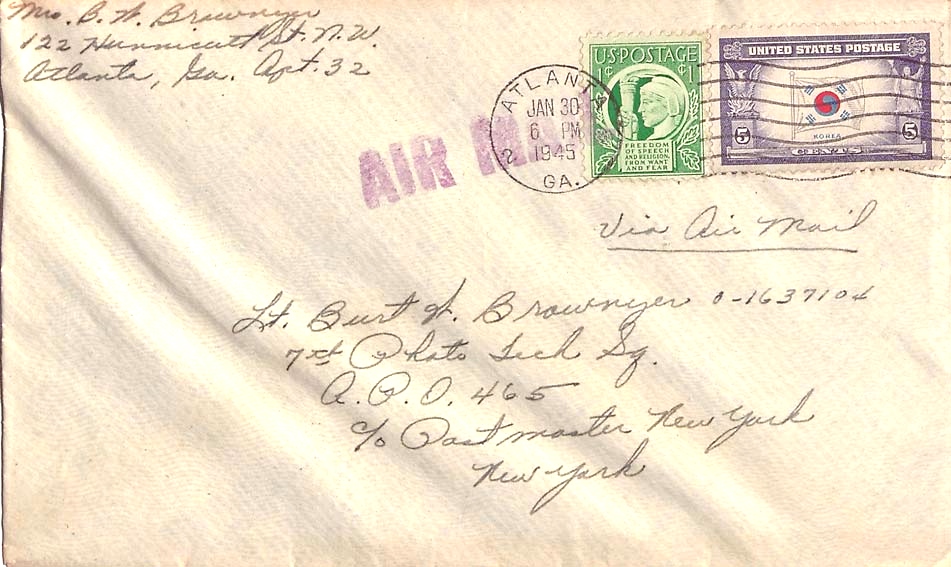 Mrs. B. W. Brownyer
122 Hunnicutt St. N.W.
Atlanta, Ga. Apt. 32
AIR
ATLANTA
JAN 30
6 PM
1945
GA.
2
U·S·POSTAGE
1¢ ¢1
FREEDOM
OF SPEECH
AND RELIGION,
FROM WANT
AND FEAR
UNITED STATES POSTAGE
KOREA
5 5
CENTS
Via Air Mail
Lt. Burt W. Brownyer 0-1637104
7th Photo Tech Sq.
A.P.O. 465
c/o Postmaster New York
New York